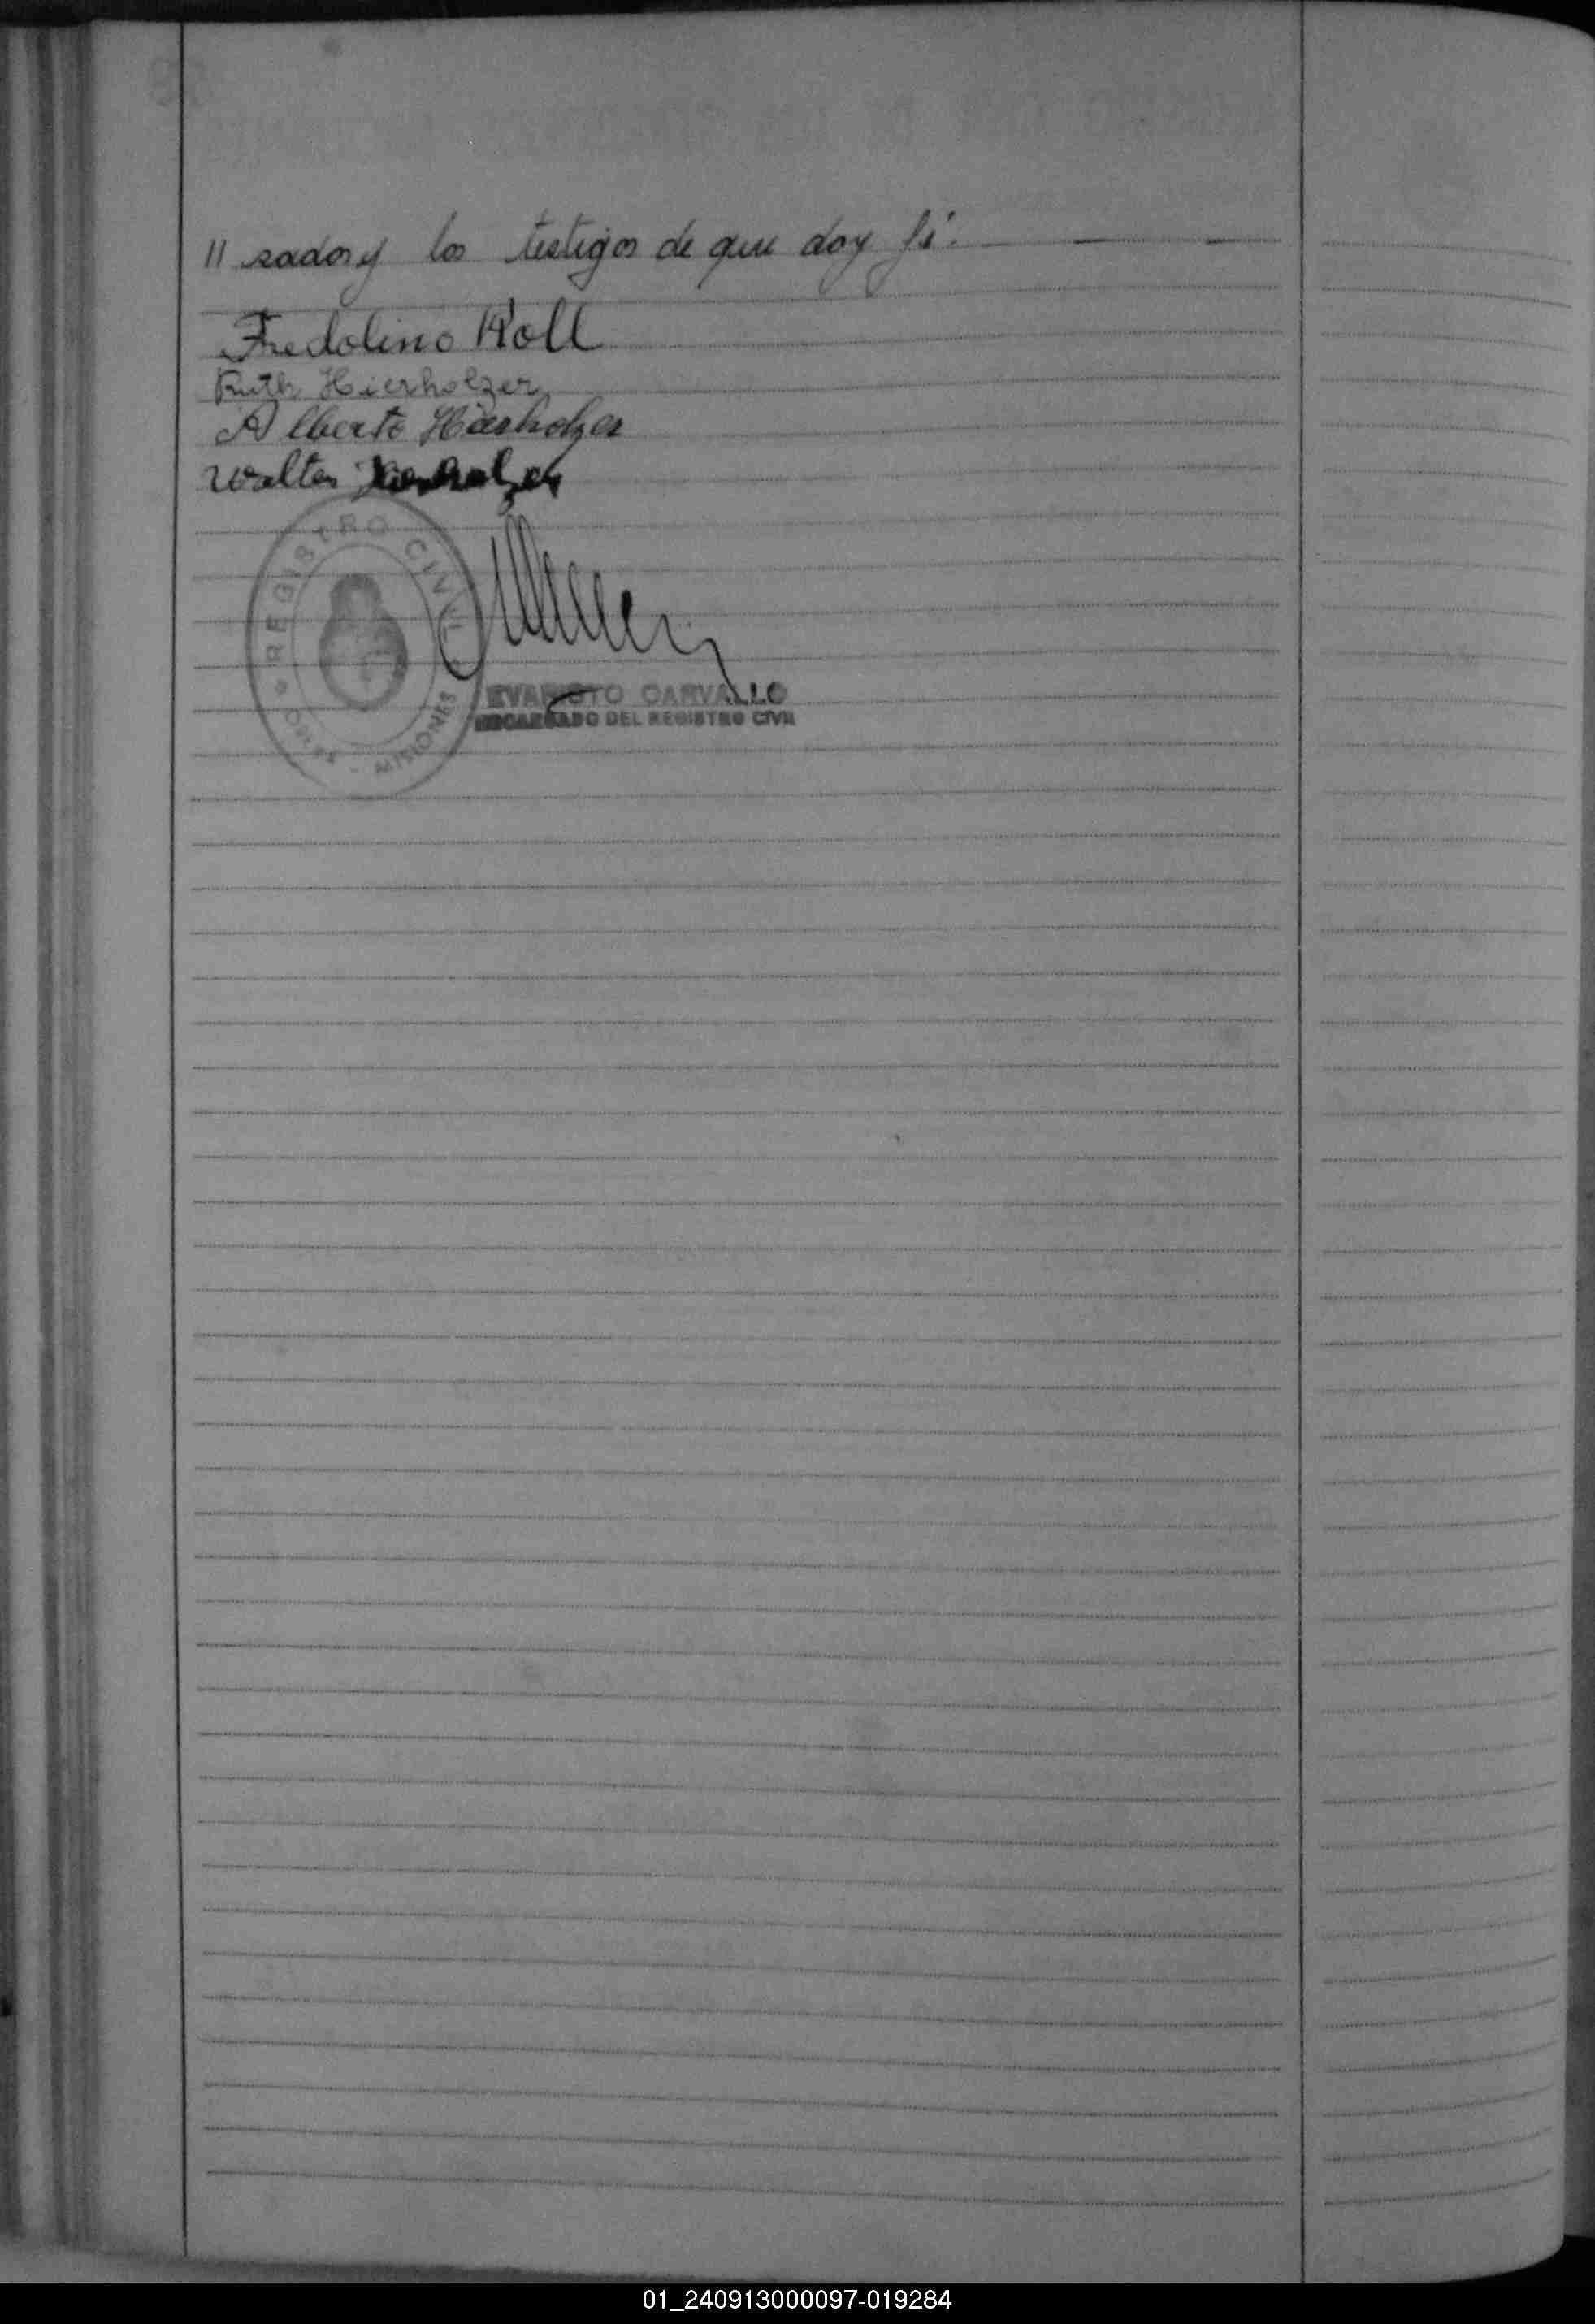 // sados y los testigos de que doy fé.
Fredolino Koll
Ruth Hierholzer
Alberto Hierholzer
Walter Hierholzer
REGISTRO CIVIL
MISIONES
EVARISTO CARVALLO
ENCARGADO DEL REGISTRO CIVIL
01_240913000097-019284